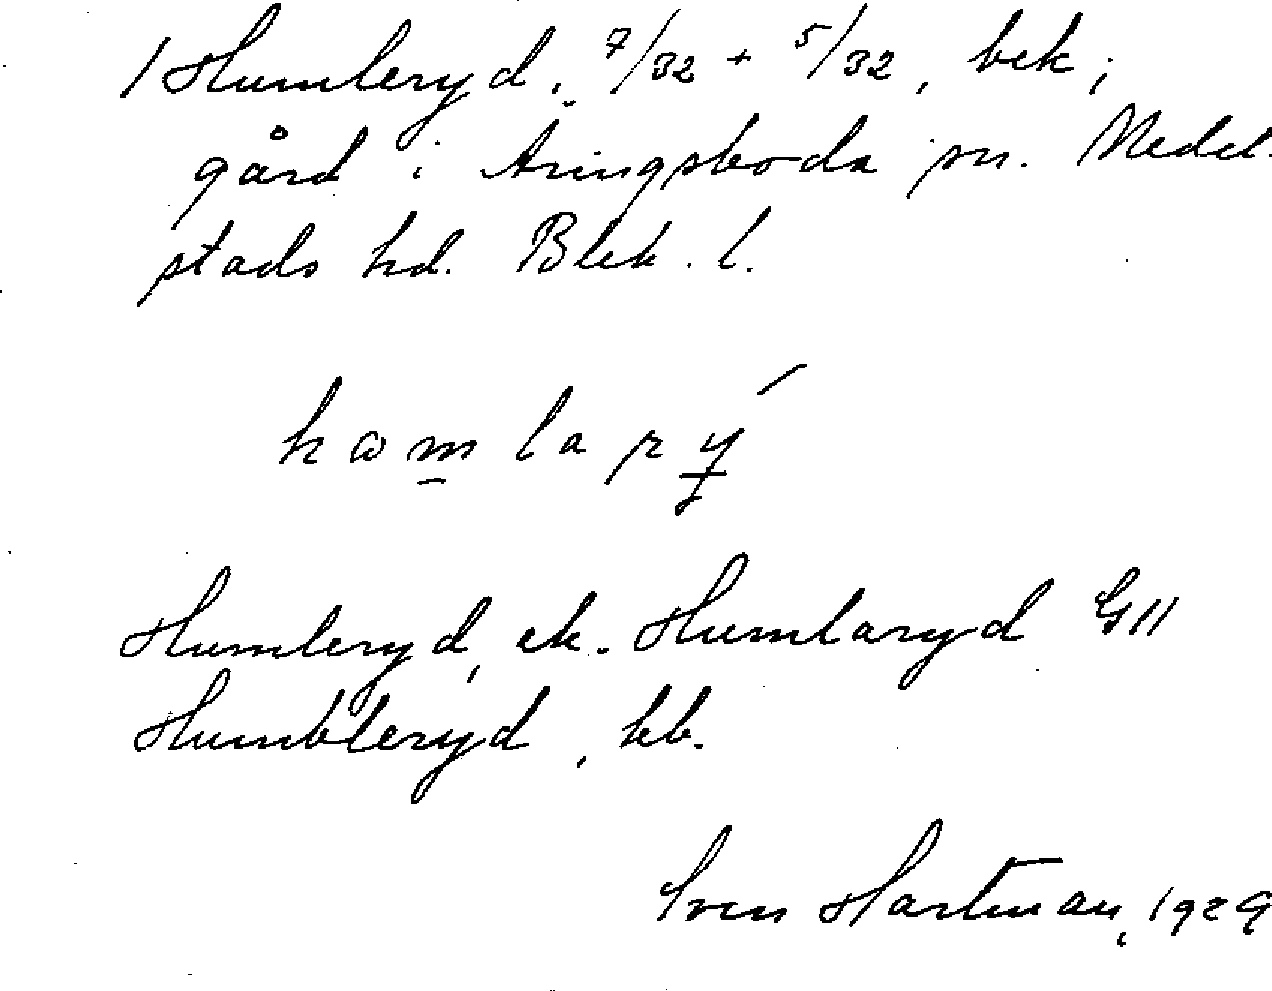 1 Humleryd, 7/32 + 5/32, bek;
gård i Aringsboda sn. Medel-
stads hd. Blek. l.
Humleryd, ek. Humlaryd G11
Humbleryd, kb.
Sven Hartman, 1929